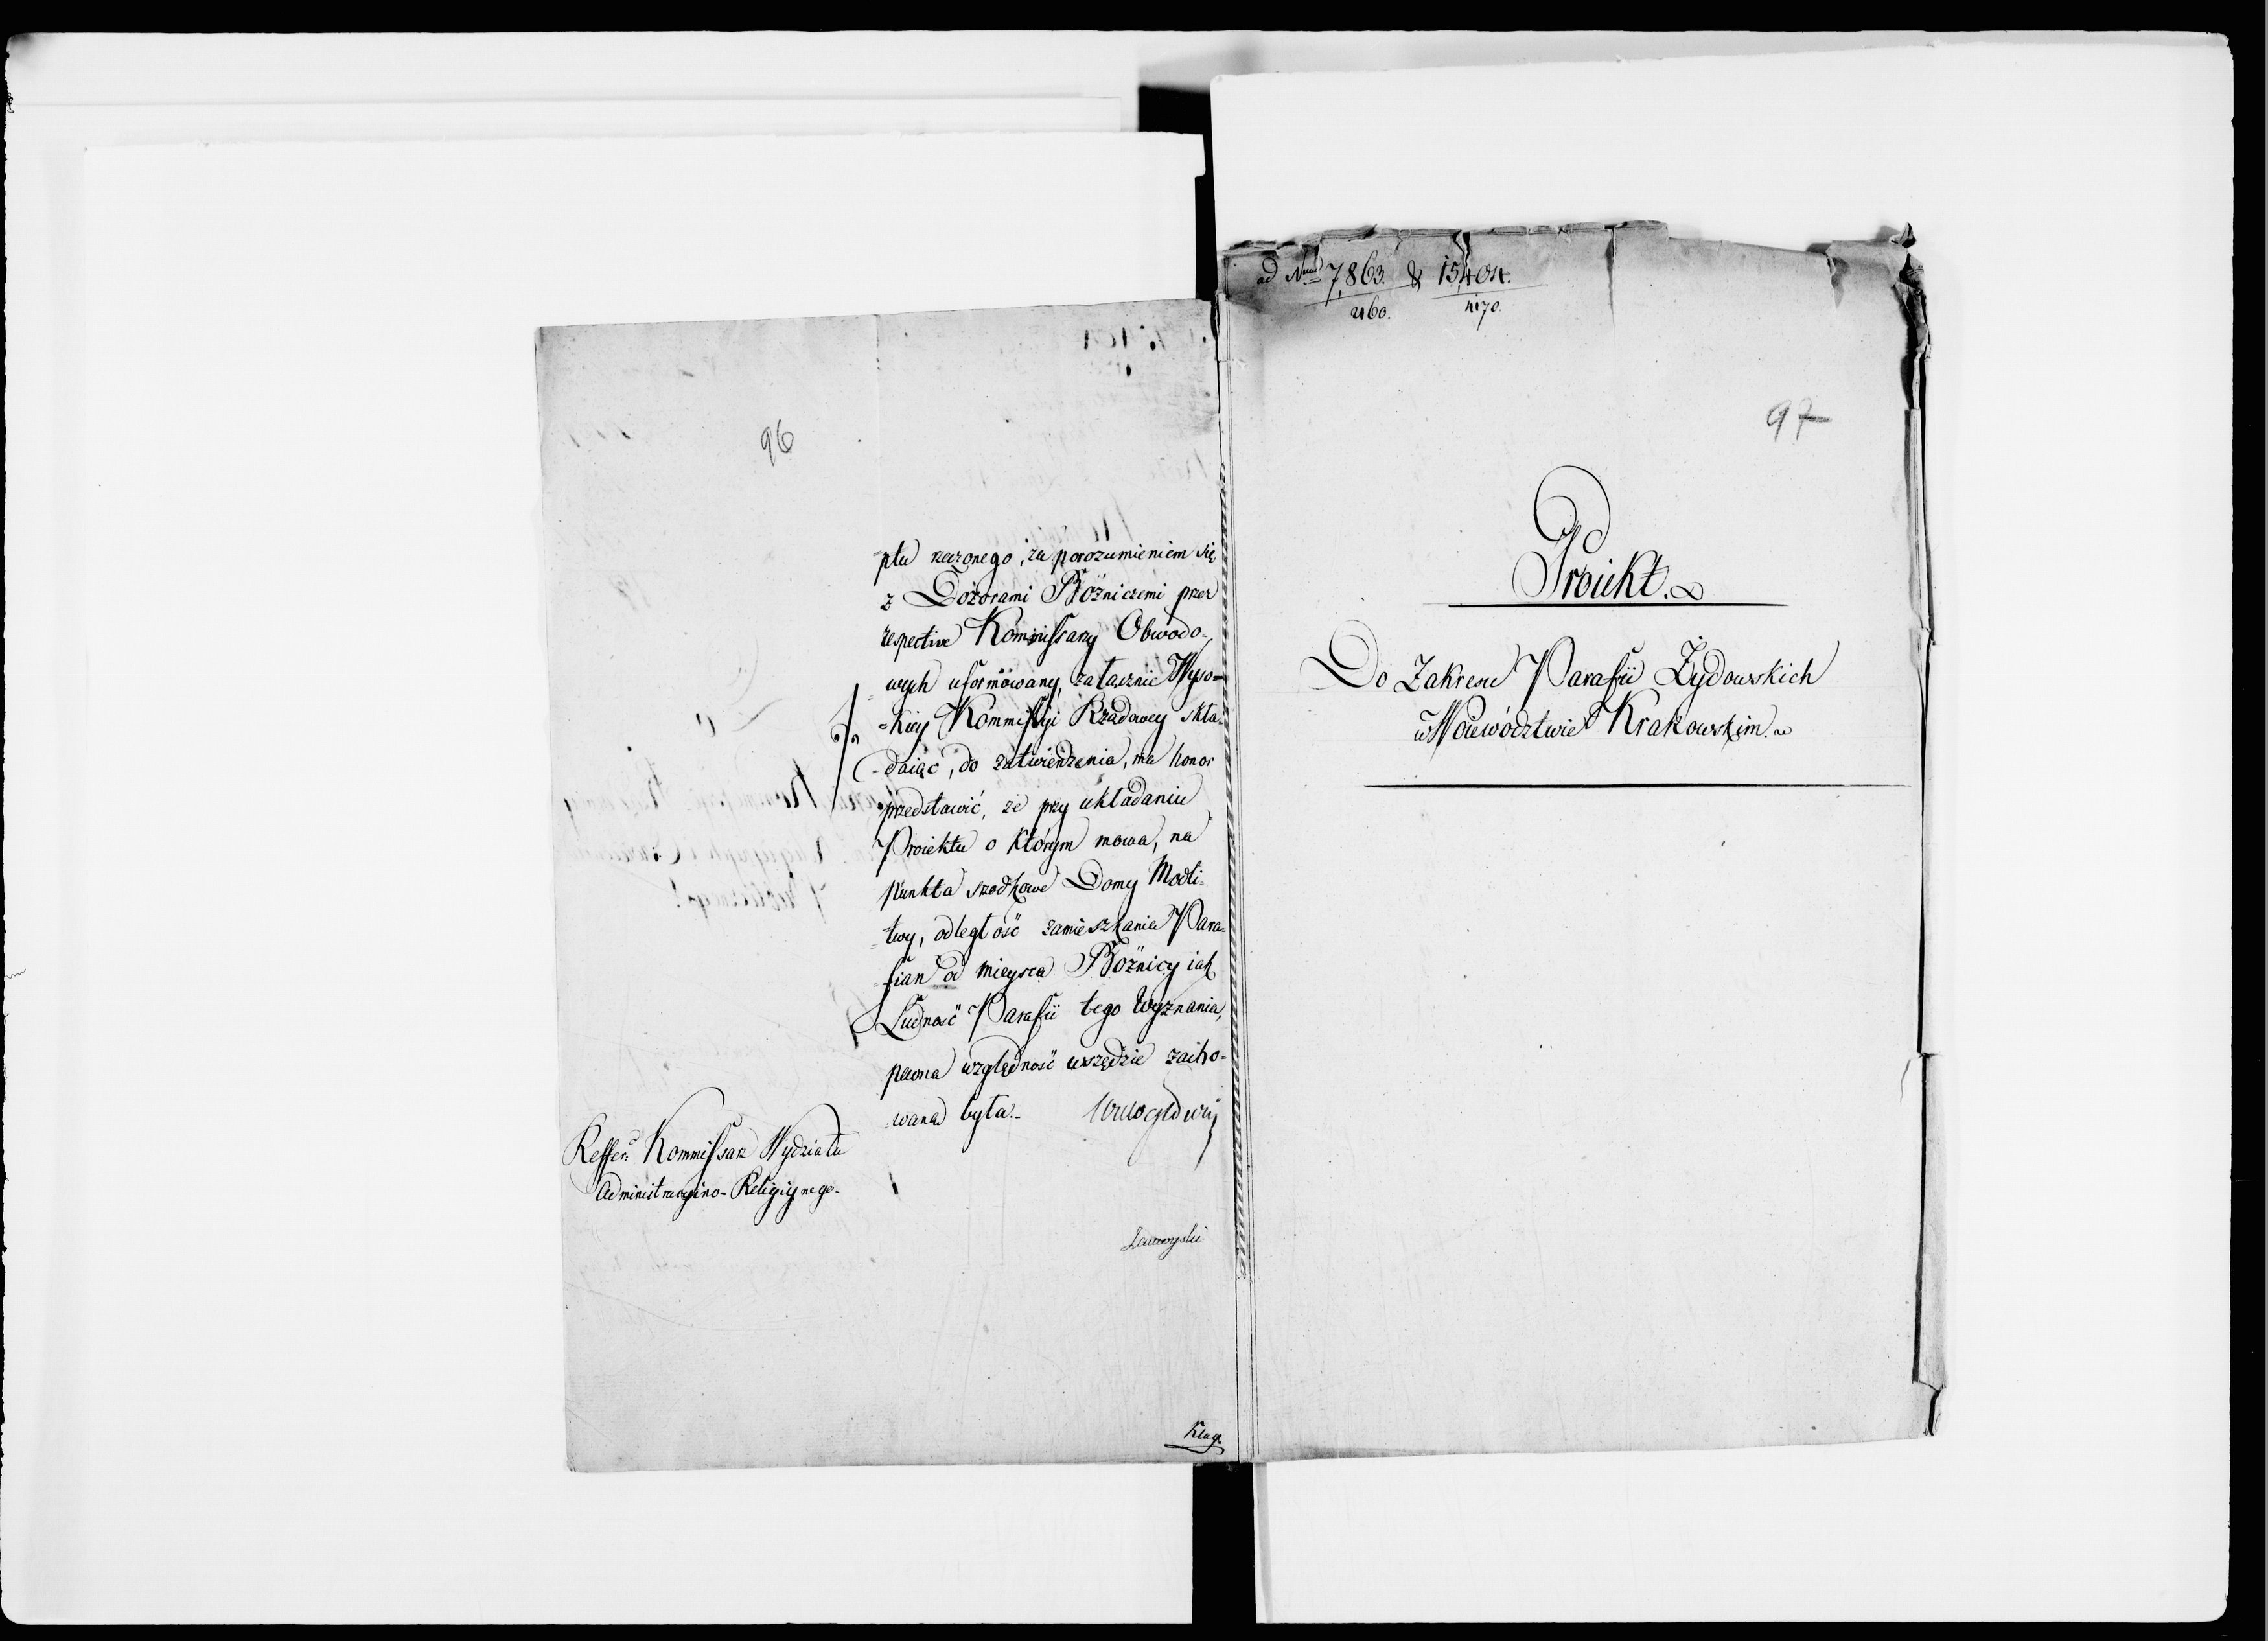 96
ptu rzeczonego, za porozumieniem się
z Dozorami Bóżniczemi przez
respective Kommissarzy Obwodo-
wych uformowany, załącznie Wyso-
kiey Kommissyi Rządowey skła-
daiąc, do zatwierdzenia, ma honor
przedstawić, że przy układaniu
Proiektu o którym mowa, na
punkta srodkowe Domy Modli-
twy, odległość zamieszkania Para-
fian od mieysca Bóżnicy iak
Ludność Parafii tego Wyznania,
pewna względność wszędzie zacho-
wana była.-
Reffer: Kommissarz Wydziału
Administracyino-Religiynego-
Klug.
ad Num 7,863. & 15,404.
2160. 4170.
97
Proiekt.
Do Zakresu Parafii Żydowskich
w Woiewództwie Krakowskim.